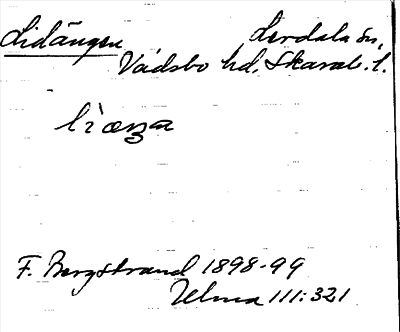 Lidängen Lerdala sn,
Vadsbo hd, Skarab. l.
F. Bergstrand 1898-99
Uelma 111:321